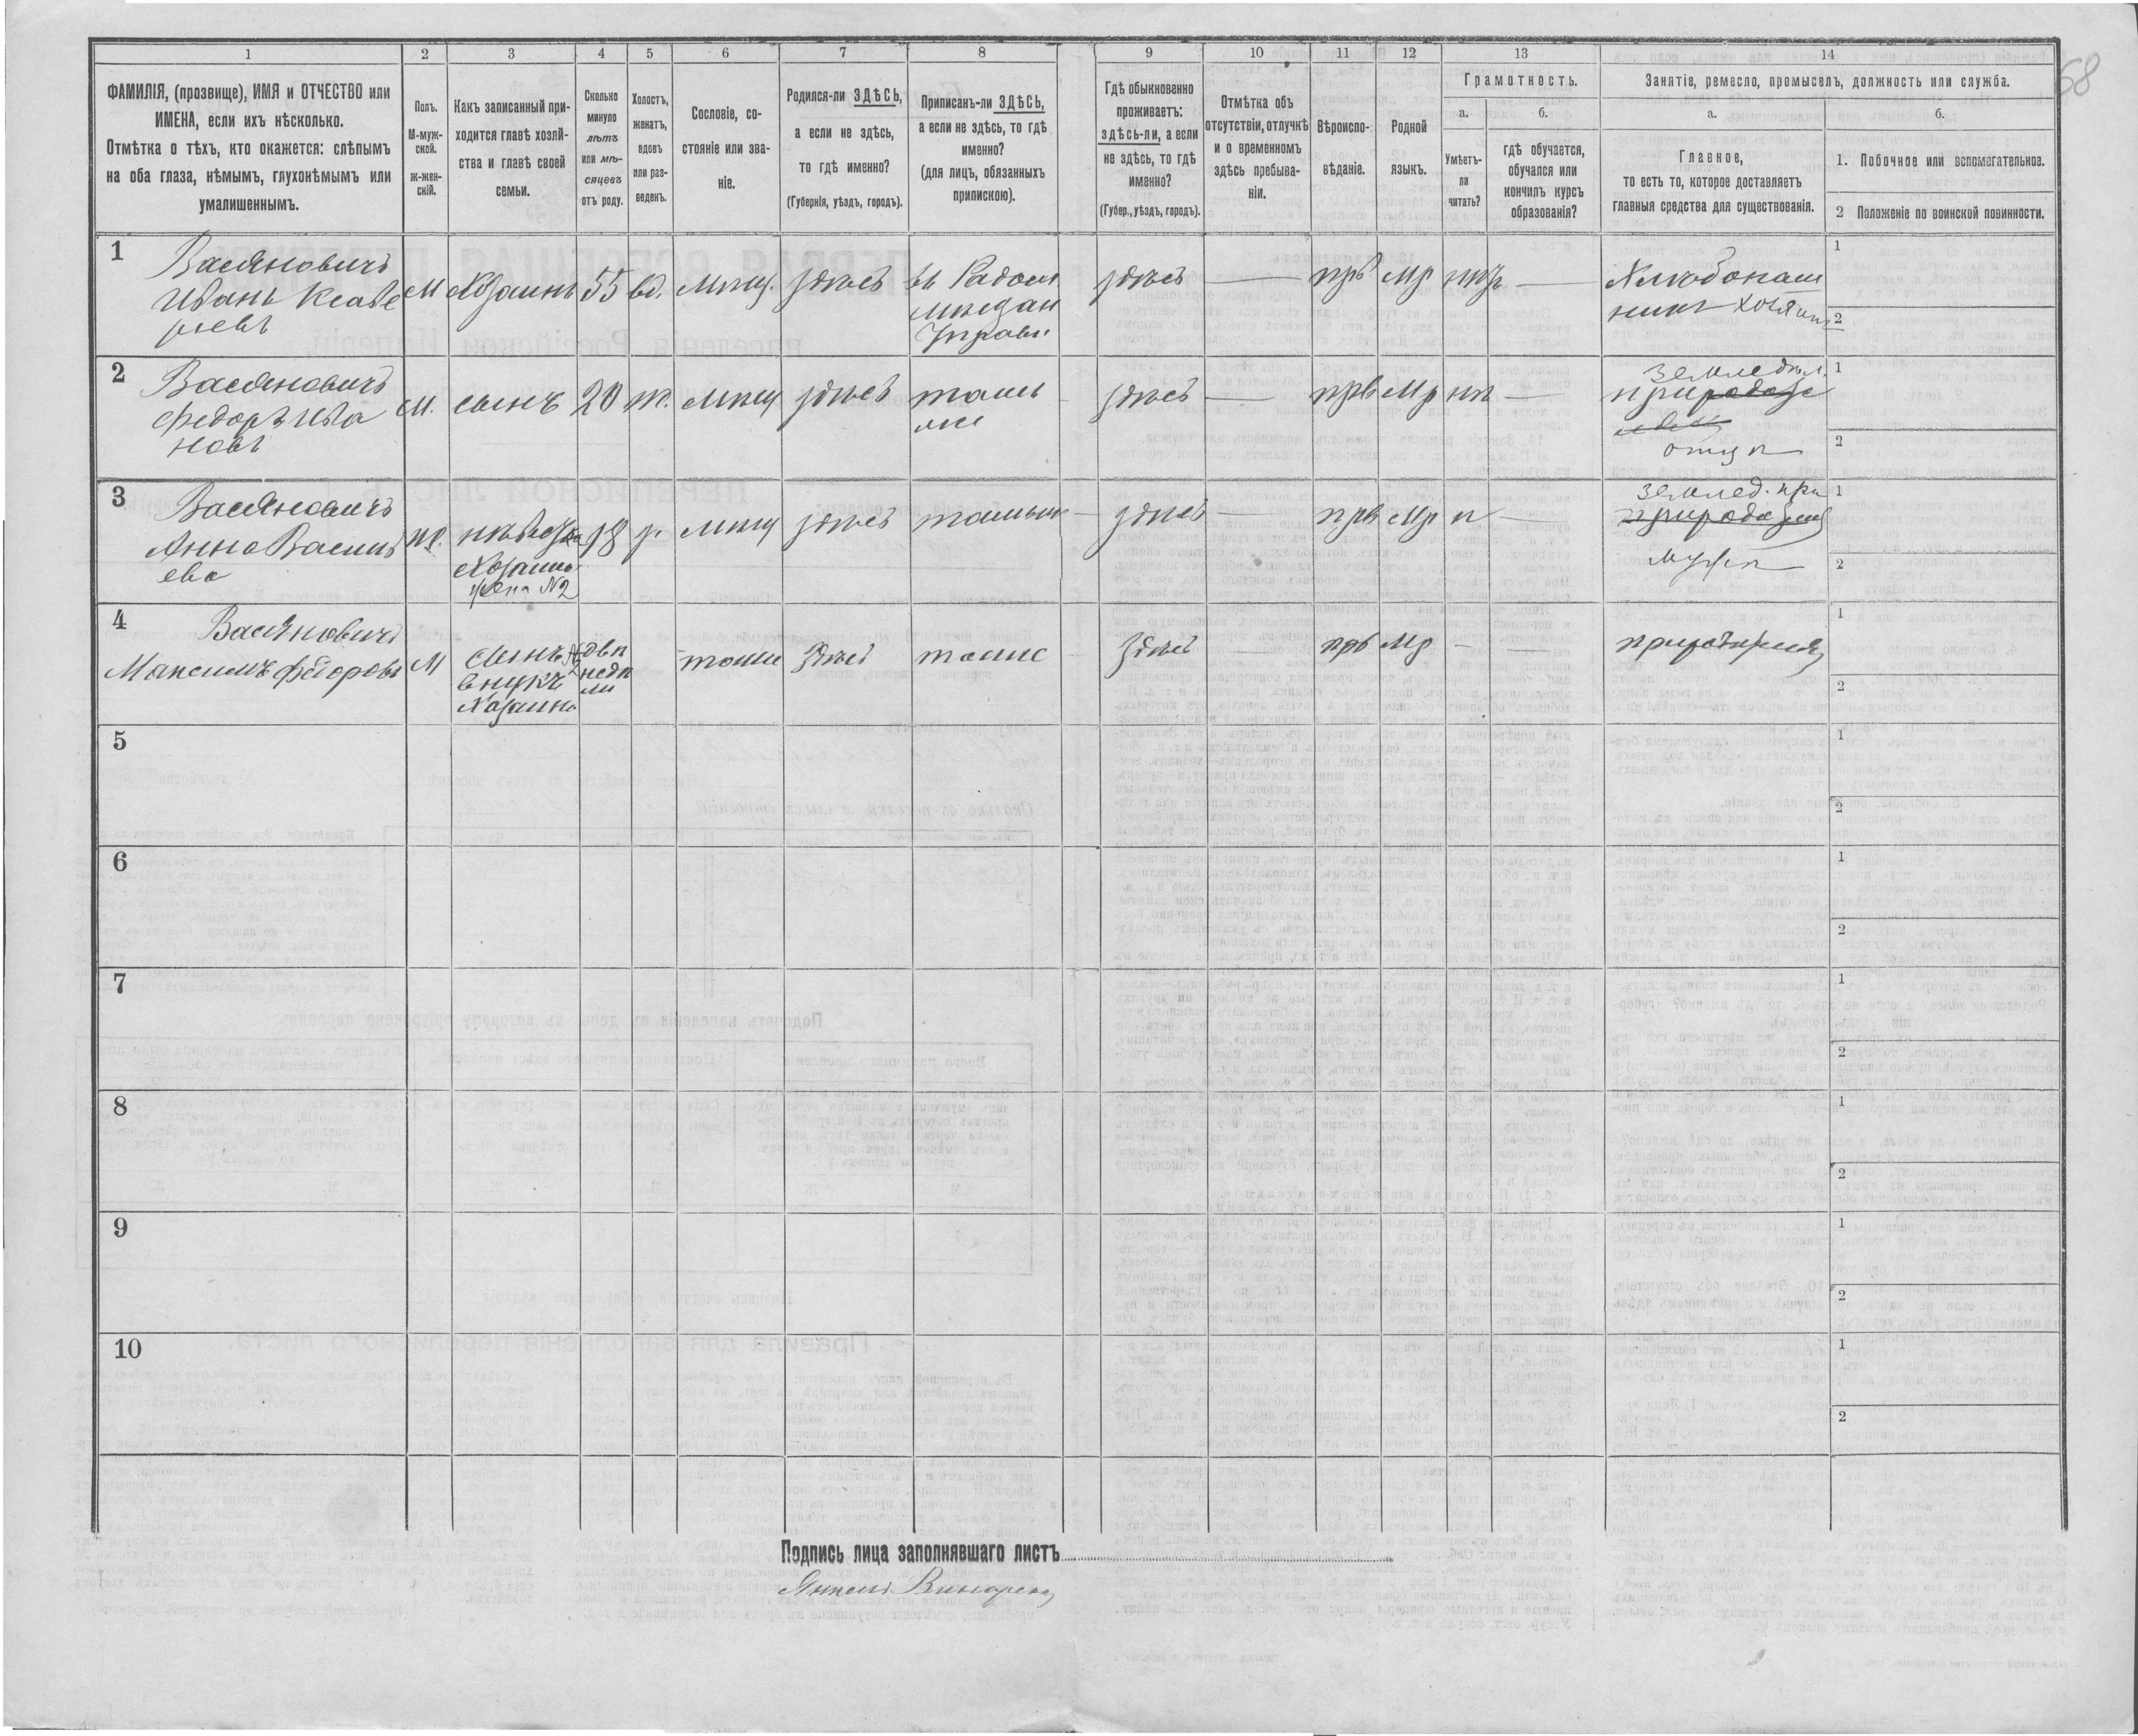 68
1 2 3 4 5 6 7 8 9 10 11 12 13 14
ФАМИЛІЯ, (прозвище), ИМЯ и ОТЧЕСТВО или
ИМЕНА, если ихъ нѣсколько.
Отмѣтка о тѣхъ, кто окажется: слѣпымъ
на оба глаза, нѣмымъ, глухонѣмымъ или
умалишеннымъ.
Полъ.
М-муж-
ской.
ж-жен-
скій.
Какъ записанный при-
ходится главѣ хозяй-
ства и главѣ своей
семьи.
Сколько
минуло
лѣтъ
или мѣ-
сяцевъ
отъ роду.
Холостъ,
женатъ,
вдовъ
или раз-
веденъ.
Сословіе, со-
стояніе или зва-
ніе.
Родился-ли ЗДѢСЬ,
а если не здѣсь,
то гдѣ именно?
(Губернія, уѣздъ, городъ).
Приписанъ-ли ЗДѢСЬ,
а если не здѣсь, то гдѣ
именно?
(для лицъ, обязанныхъ
припискою).
Гдѣ обыкновенно
проживаетъ:
здѣсь-ли, а если
не здѣсь, то гдѣ
именно?
(Губер., уѣздъ, городъ).
Отмѣтка объ
отсутствіи, отлучкѣ
и о временномъ
здѣсь пребыва-
ніи.
Вѣроиспо-
вѣданіе.
Родной
языкъ.
Грамотность.
а.
Умѣетъ-
ли
читать?
б.
гдѣ обучается,
обучался или
кончилъ курсъ
образованія?
Занятіе, ремесло, промыселъ, должность или служба.
а.
Главное,
то есть то, которое доставляетъ
главныя средства для существованія.
б.
1. Побочное или вспомогательное.
2 Положеніе по воинской повинности.
1
Васяновичъ
Иванъ Ксаве
рьевъ
М
Хозяинъ
55
вд.
Мѣщ.
здѣсь
въ Радом
мѣщан
Управы
здѣсь
—
прв
Мр
—
Хлебопаш
никъ хозяинъ
1
2
2
Васяновичъ
Федоръ Ива
новъ
М.
сынъ
20
ж.
Мѣщ
здѣсь
тамъ
же
здѣсь
—
прв
Мр
нѣ
—
землед.
при
отцѣ
1
2
3
Васяновичъ
Анна Василь
ева
ж.
невѣстка
Хозяина
жена №2
18
з.
Мѣщ
здѣсь
тамъже
здѣсь
—
прв
Мр
н
—
землед. при
мужѣ
1
2
4
Васяновичъ
Максимъ Федоровъ
М
сынъ №2
внукъ
Хозяина
двѣ
недѣ
ли
тоже
здѣсь
тоже
здѣсь
—
прв
Мр
—
—
1
2
5
1
2
6
1
2
7
1
2
8
1
2
9
1
2
10
1
2
Подпись лица заполнявшаго листъ